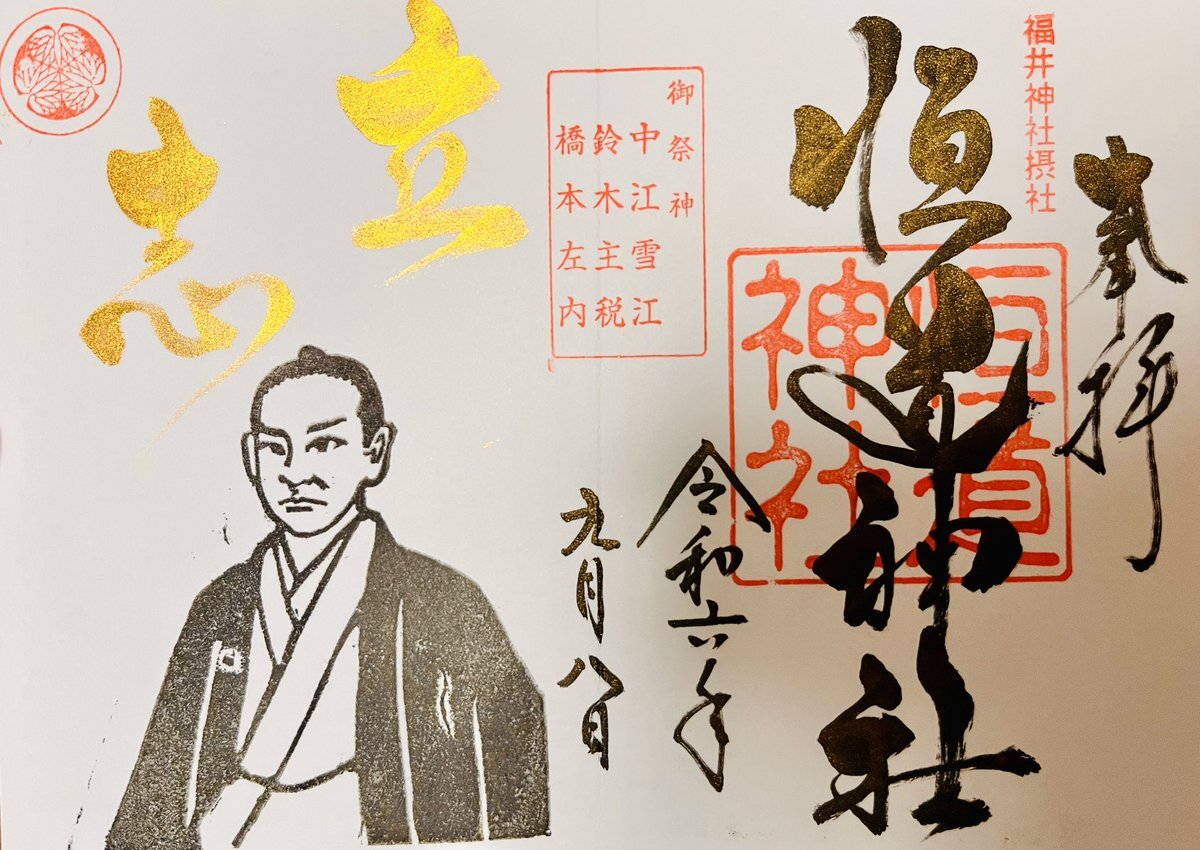 奉拝
福井神社摂社
恒道神社
恒道神社
令和六年
九月八日
御祭神
中江雪江
鈴木主税
橋本左内
立志